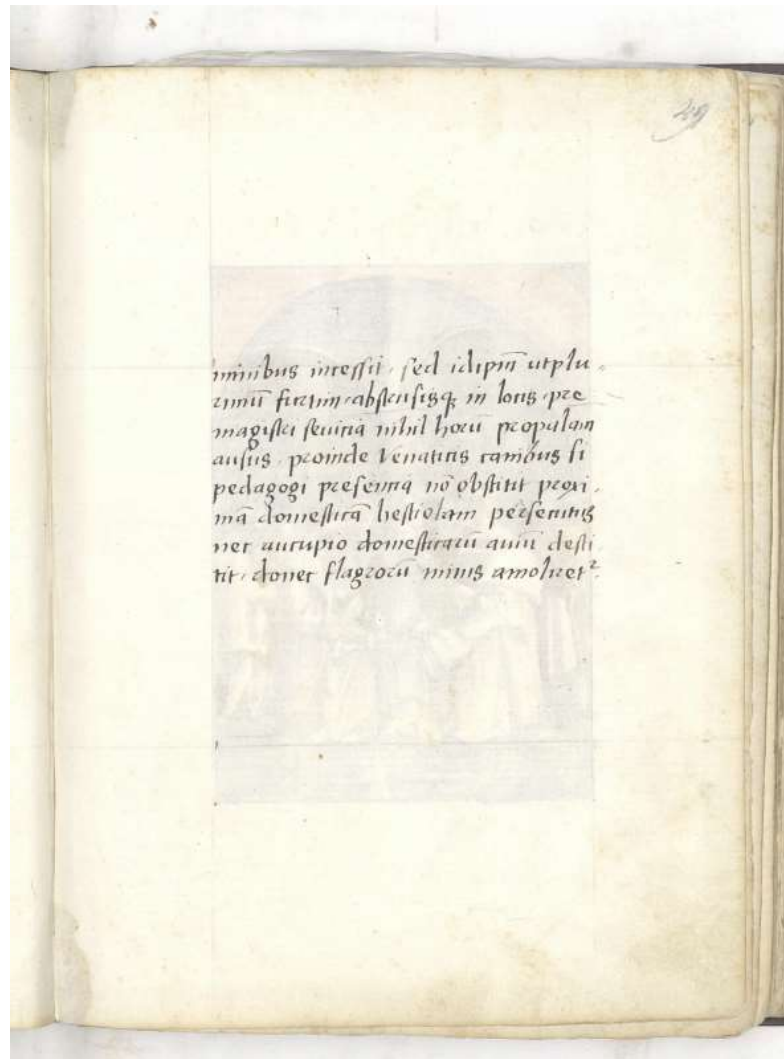 49
minibus incessit, sed idipm̄ utplu-
rimū furtim, abstrusisq; in locis, pre
magistri sevicia nihil horū propalam
ausus, proinde Venaticis canibus si
pedagogi presentia nō obstitit proxi-
mā domesticā bestiolam persecutus
nec aucupio domesticarū aviū desti-
tit, donec flagrorū minis amoliret².